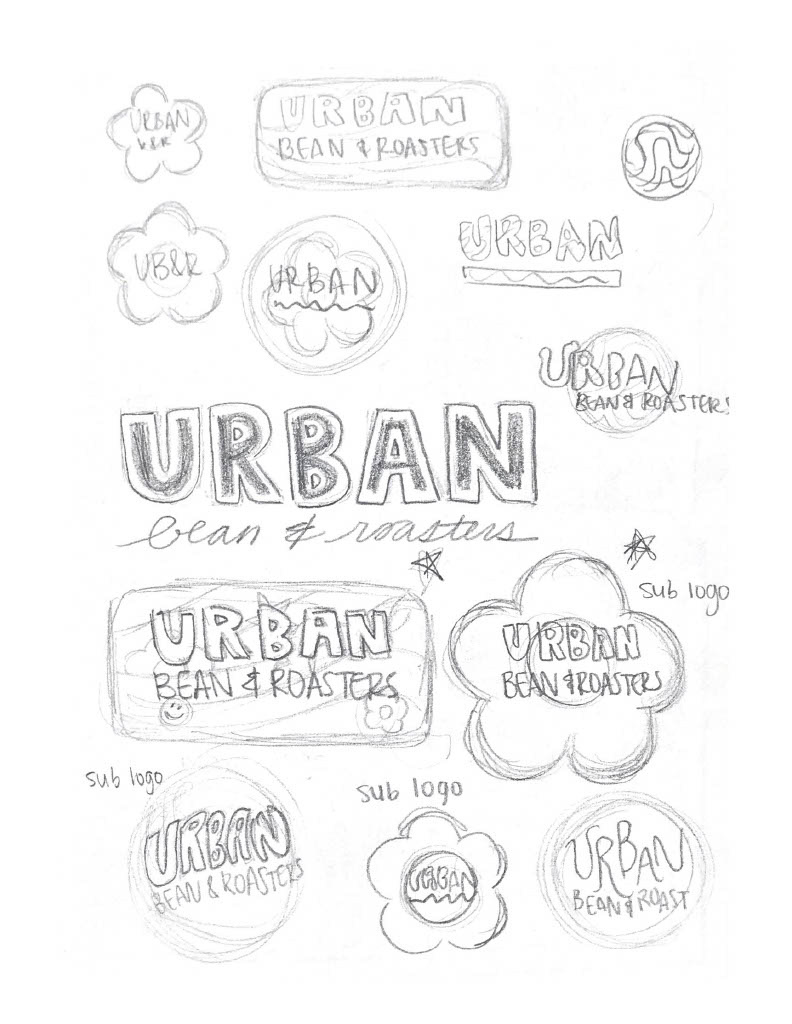 URBAN
B&R
URBAN
BEAN & ROASTERS
UB&R
URBAN
URBAN
URBAN
BEAN & ROASTERS
URBAN
bean & roasters
sub logo
URBAN
BEAN & ROASTERS
URBAN
BEAN & ROASTERS
sub logo
sub logo
URBAN
BEAN & ROASTERS
URBAN
URBAN
BEAN & ROAST